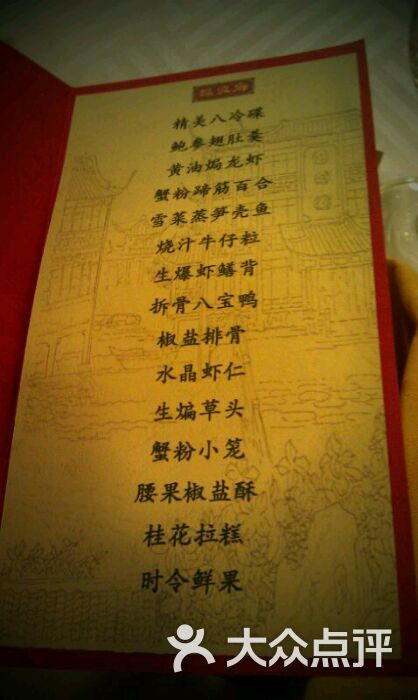 精美八冷碟
鲍参翅肚羹
黄油焗龙虾
蟹粉蹄筋百合
雪菜蒸笋壳鱼
烧汁牛仔粒
生爆虾鳝背
拆骨八宝鸭
椒盐排骨
水晶虾仁
生煸草头
蟹粉小笼
腰果椒盐酥
桂花拉糕
时令鲜果
大众点评